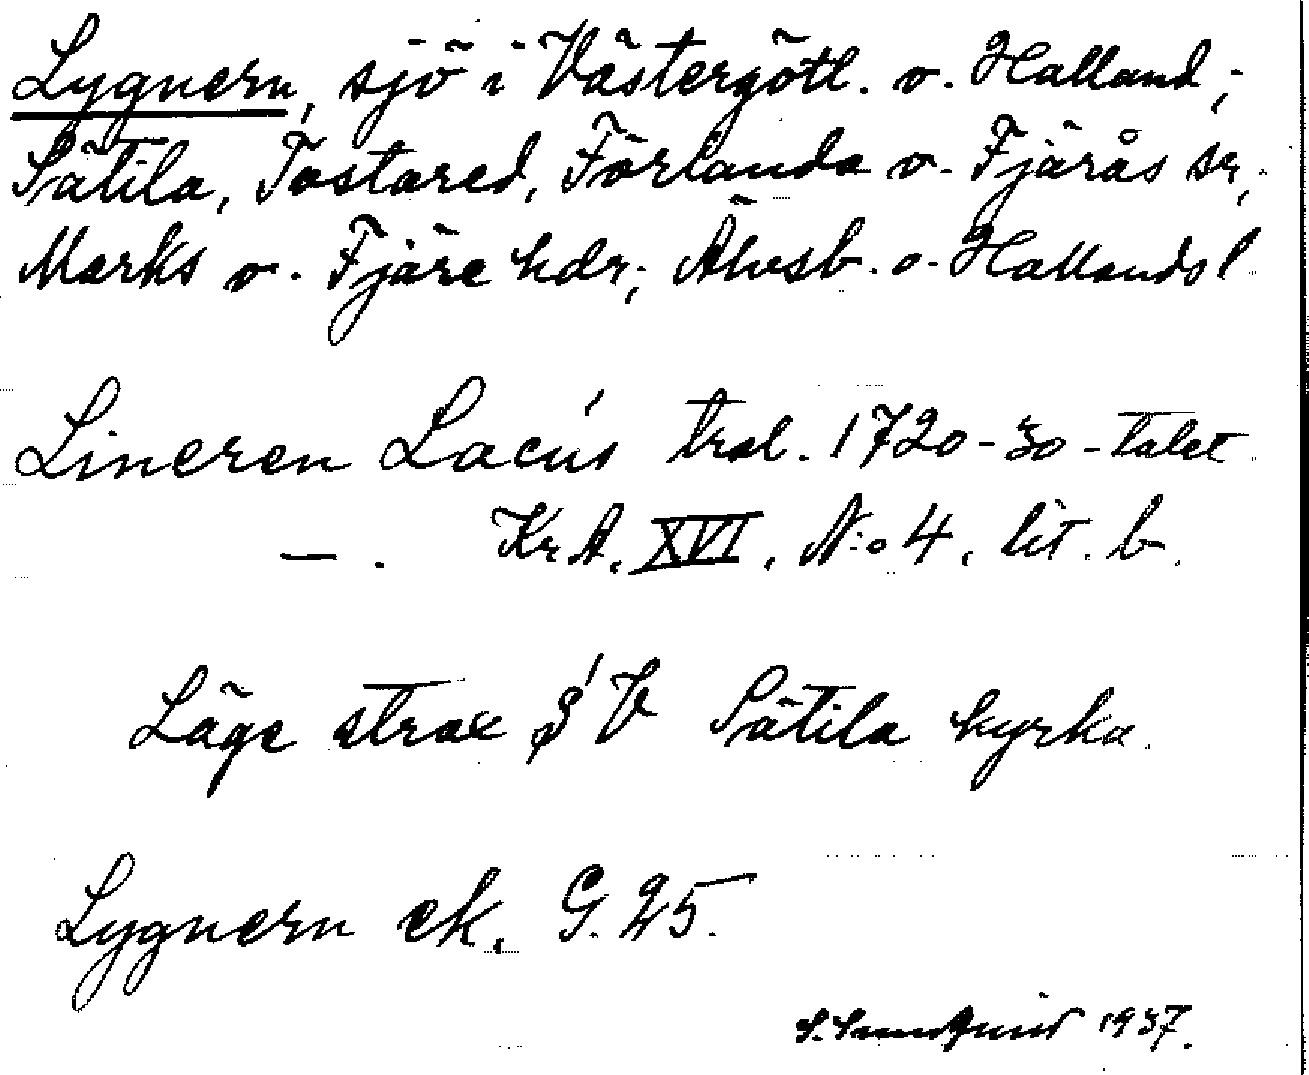 Lygnern, sjö i Västergötl. o. Halland;
Sätila, Tostared, Förlanda o. Fjärås sr,
Marks o. Fjäre hdr; Älvsb. o. Hallands l
Lineren Lacus trol. 1720-30-talet
—. KrA. XVI, N:o 4, lit. b.
Läge strax S' V Sätila kyrka.
Lygnern ek. G. 25.
1937.